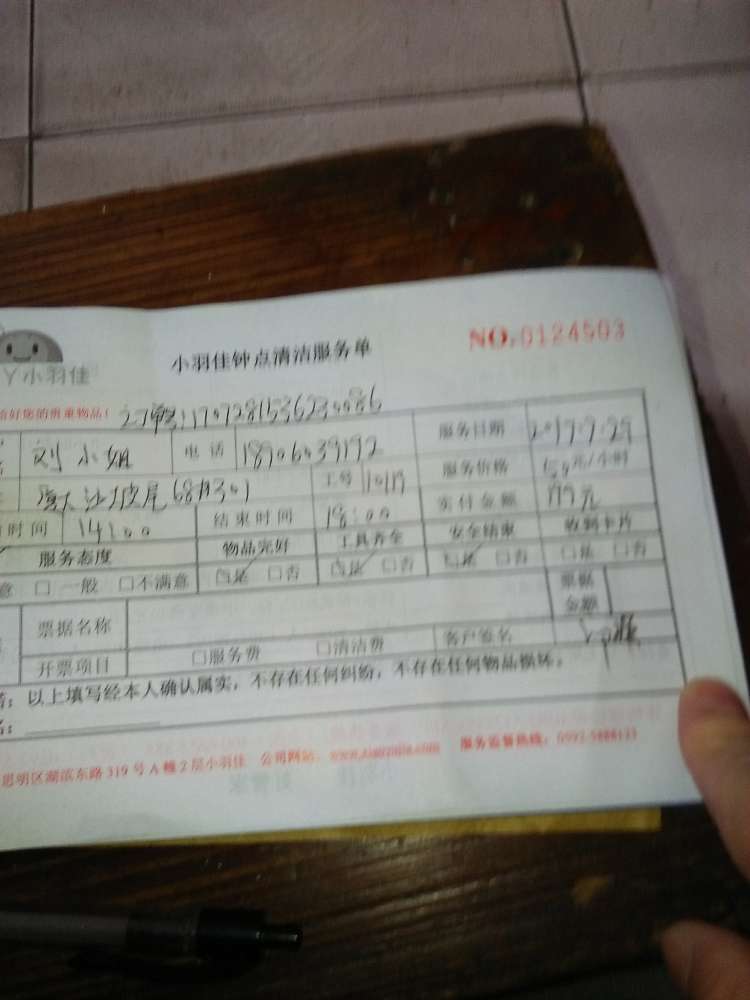 小羽佳钟点清洁服务单
NO.0124503
小羽佳
刘小姐 电话 18906039192 服务日期 2017.7.29
厦大沙坡尾68# 301 工号 服务价格 50元/小时
时间 14:00 结束时间 18:00 实付金额
服务态度 物品完好 工具齐全 安全结束 收到卡片
意 □ 一般 □不满意 □是 □否 □是 □否 □是 □否 □是 □否
票据名称 票据金额
开票项目 □服务费 □清洁费 客户签名
以上填写经本人确认属实，不存在任何纠纷，不存在任何物品损坏。
思明区湖滨东路319号A幢2层小羽佳 公司网站: 服务监督热线: